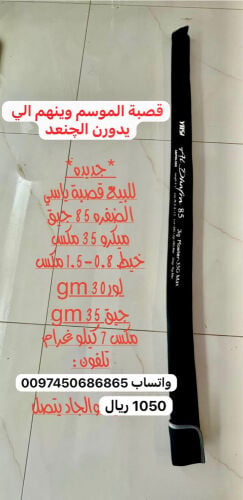 قصبة الموسم وينهم الي
يدورن الچنعد
*جديده*
للبيع قصبة ياسي
الضفره 85 جيق
ميكرو 35 مكس
خيط 0.8-1.5 مكس
لور 30 gm
جيق 35 gm
مكس 7 كيلو غرام
تلفون :
واتساب 0097450686865
1050 ريال والجاد يتصل
Al Dhafra 85